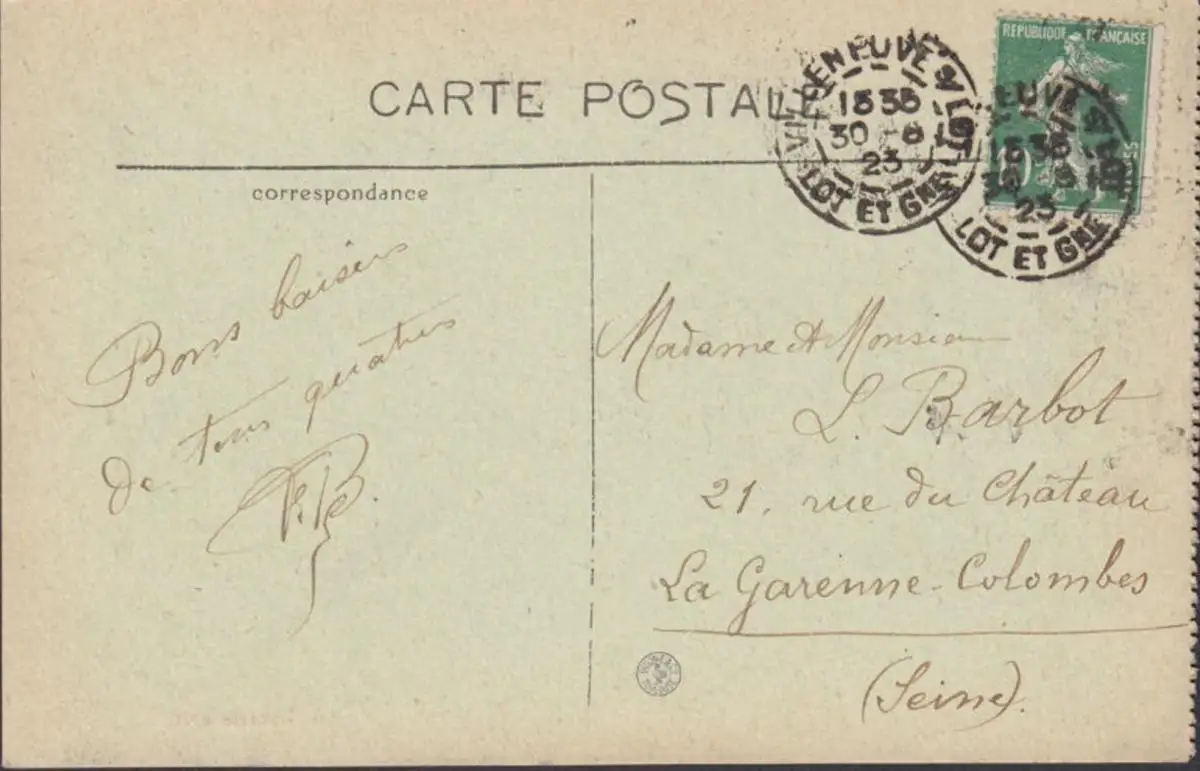 CARTE POSTALE
VILLENEUVE S/ LOT
15 35
30 - 8
23
LOT ET GNE
REPUBLIQUE FRANÇAISE
EUVE S/ LOT
23
LOT ET GNE
correspondance
Bons baisers
de tous quatres
Madame et Monsieur
L. Barbot
21, rue du Château
La Garenne-Colombes
(Seine).